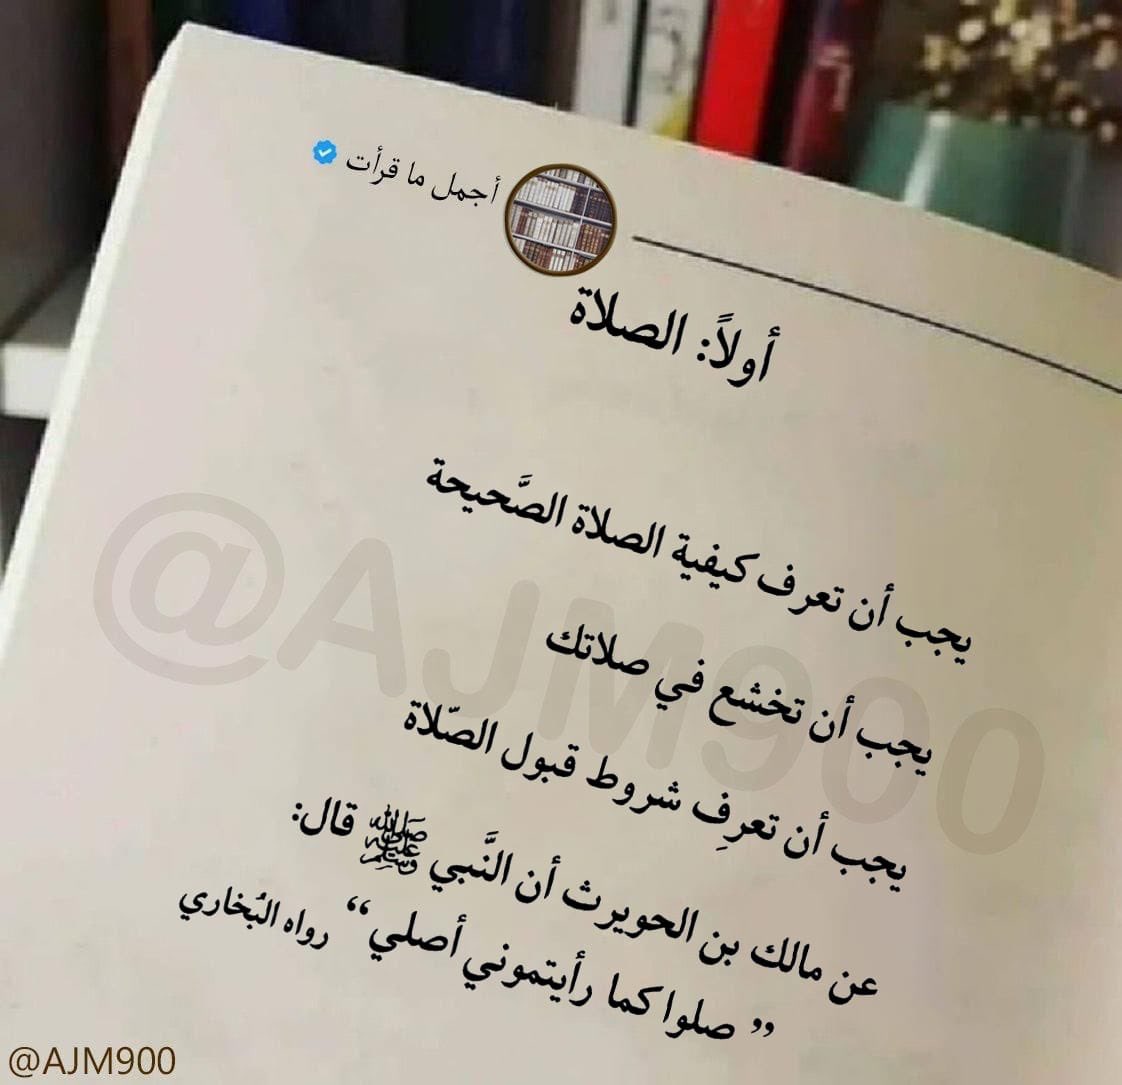 أجمل ما قرأت
أولاً: الصلاة
يجب أن تعرف كيفية الصلاة الصَّحيحة
يجب أن تخشع في صلاتك
يجب أن تعرِف شروط قبول الصّلاة
عن مالك بن الحويرث أن النَّبي ﷺ قال:
” صلوا كما رأيتموني أصلي “ رواه البُخاري
@AJM900
@AJM900